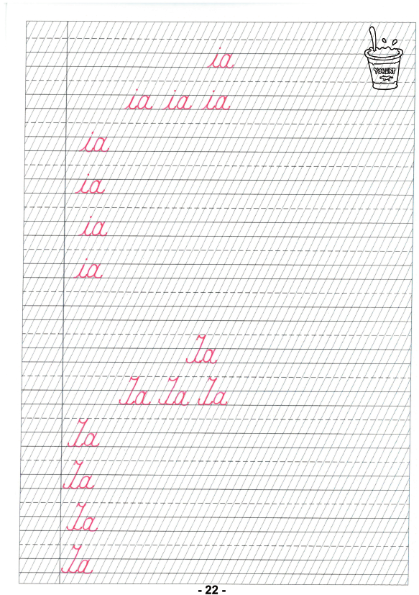 ia
ia ia ia
ia
ia
ia
ia
Ia
Ia Ia Ia
Ia
Ia
Ia
Ia
- 22 -